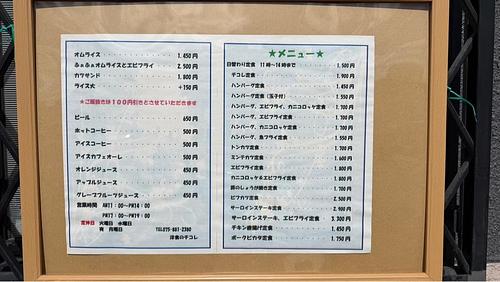 オムライス 1.450円
ふぁふぁオムライスとエビフライ 2.500円
カツサンド 1.800円
ライス大 +150円
★ご飯抜きは100円引きとさせていただきます
ビール 650円
ホットコーヒー 500円
アイスコーヒー 500円
アイスカフェオーレ 500円
オレンジジュース 450円
アップルジュース 450円
グレープフルーツジュース 450円
営業時間 AM11:00〜PM14:00
PM17:00〜PM19:00
定休日 火曜日 水曜日
月曜日
洋食のデコレ
★メニュー★
日替わり定食 11時〜14時まで 1.500円
デコレ定食 1.900円
ハンバーグ定食 1.450円
ハンバーグ定食(玉子付)
ハンバーグ、エビフライ、カニコロッケ定食 1.700円
ハンバーグ、エビフライ定食 1.700円
ハンバーグ、カニコロッケ定食 1.700円
ハンバーグ、魚フライ定食 1.550円
トンカツ定食 1.700円
ミンチカツ定食 1.600円
エビフライ定食 1.800円
カニコロッケ&エビフライ定食 1.800円
豚のしょうが焼き定食 1.700円
ビフカツ定食 2.500円
サーロインステーキ定食 2.900円
サーロインステーキ、エビフライ定食 3.300円
チキン唐揚げ定食 1.450円
ポークピカタ定食 1.750円